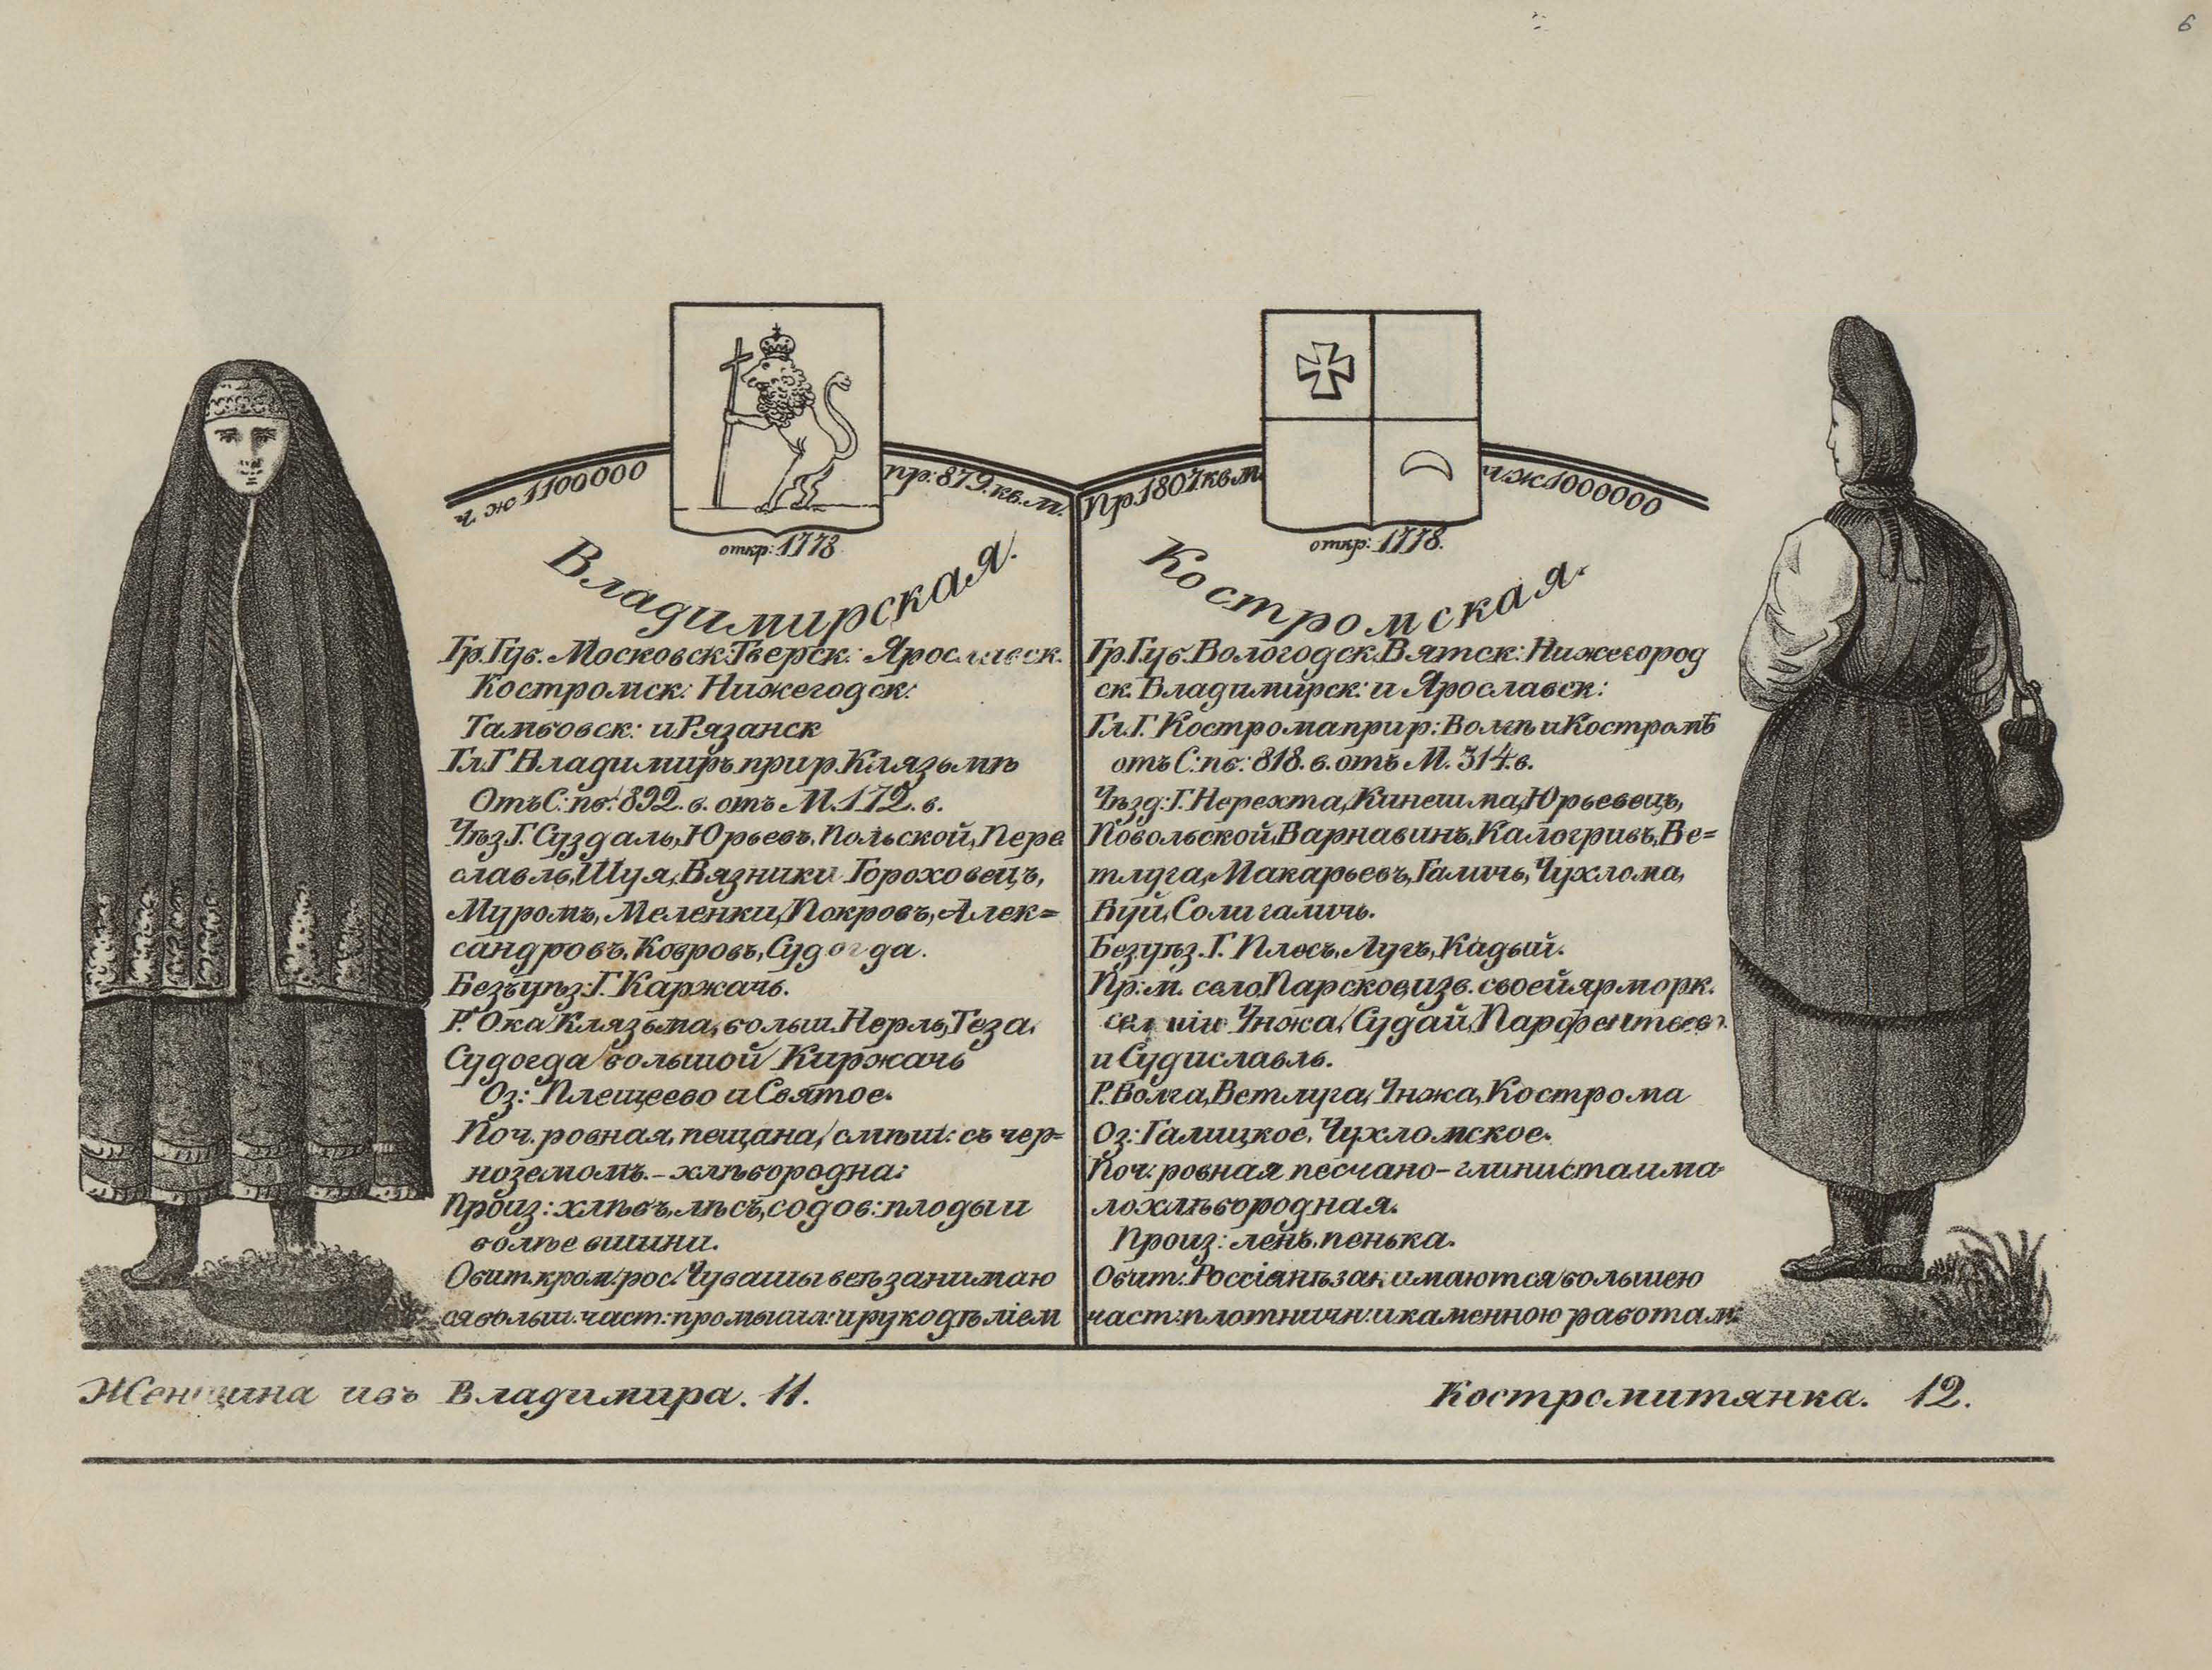 6
ч. ж 1100000
пр: 879. кв. м.
откр: 1778
Владимирская.
Гр. Губ. Московск. Тверск: Ярославск.
Костромск: Нижегодск:
Тамбовск: и Рязанск
Гл. Г Владимиръ при р. Клязьмѣ
Отъ С: пб: 892. в. отъ М. 172. в.
Уѣз. Г. Суздаль, Юрьевъ, Польской, Пере
славль, Шуя, Вязники Гороховецъ,
Муромъ, Меленки, Покровъ, Алек=
сандровъ, Ковровъ, Судогда.
Безъуѣз: Г. Каржачь.
Р. Ока Клязьма, больш. Нерль, Теза,
Судогда большой Киржачь
Оз: Плещеево и Святое.
Поч. ровная, пещана, смѣш: съ чер=
ноземомъ. - хлѣбородна:
Произ: хлѣбъ, лѣсъ, содов: плоды и
болѣе вишни.
Обит. кром: рос. Чуваши всѣ занимаю
ся больш. част: промышл: и рукодѣліем
Пр 1807 кв м.
ч. ж 1000000
откр: 1778.
Костромская.
Гр. Губ. Вологодск. Вятск: Нижегород
ск. Владимирск: и Ярославск:
Гл. Г. Кострома при р: Волгѣ и Костромѣ
отъ С: пб: 818. в. отъ М. 314. в.
Уѣзд: Г. Нерехта, Кинешма, Юрьевецъ,
Повольской, Варнавинъ, Калогривъ, Ве=
тлуга, Макарьевъ, Галичь, Чухлома,
Буй, Солигаличь.
Безуѣз. Г. Плесъ, Лугъ, Кадый.
Пр: м. село, Парское, изв. своей ярморк.
Унжа, Судай, Парфентьевъ
и Судиславль.
Р. Волга, Ветлуга, Унжа, Кострома
Оз: Галицкое, Чухломское.
Поч: ровная песчано-глиниста и ма-
лохлѣбородная.
Произ: ленъ, пенька.
Обит: Россіянѣ занимаются большею
част: плотничн: и каменною работам:
Женщина изъ Владимира. 11.
Костромитянка. 12.